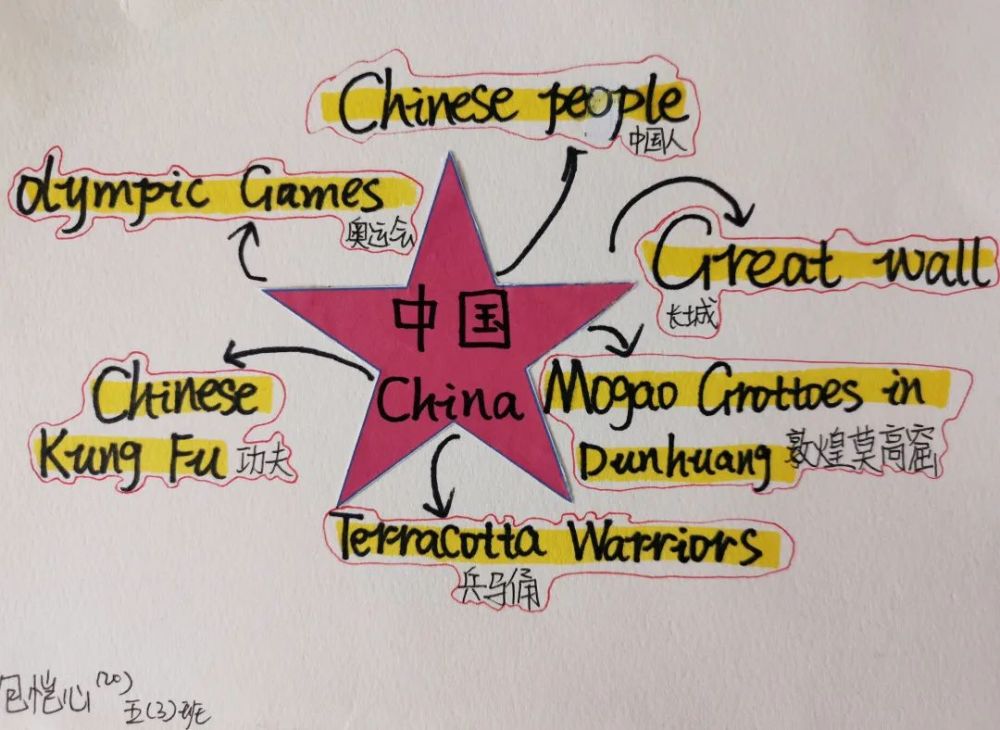 Chinese people
中国人
olympic Games
奥运会
Great wall
长城
中国
China
Chinese
Kung Fu 功夫
Mogao Grottoes in
Dunhuang 敦煌莫高窟
Terracotta Warriors
兵马俑
包恺心(20)
五(3)班